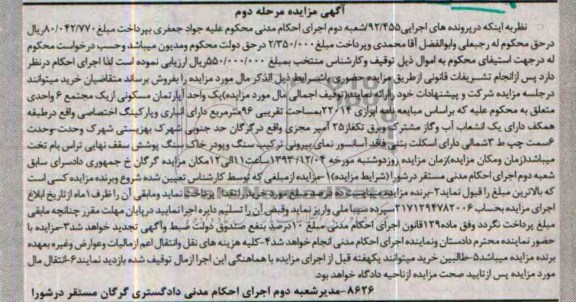 آگهی مزایده مرحله دوم
نظر به اینکه در پرونده های اجرایی ۹۲/۴۵۵/شعبه دوم اجرای احکام مدنی محکوم علیه جواد جعفری بپرداخت مبلغ ۸۰/۰۴۲/۷۷۰ریال
درحق محکوم له رجبعلی وابوالفضل آقامحمدی وپرداخت مبلغ ۲/۳۵۰/۰۰۰ درحق دولت محکوم ومدیون میباشد وحسب درخواست محکوم
له درجهت استیفای محکوم به اموال ذیل توقیف وکارشناس منتخب بمبلغ ۵۵۰/۰۰۰/۰۰۰ریال ارزیابی نموده است لذا اجرای احکام درنظر
دارد پس ازانجام تشریفات قانونی ازطریق مزایده حضوری باشرایط ذیل الذکر مال مورد مزایده را بفروش برساند متقاضیان خرید میتوانند
درجلسه مزایده شرکت و پیشنهادات خود را ارائه نمایند(توقیف اجمالی مال مورد مزایده)یک واحد آپارتمان مسکونی ازیک مجتمع ۶ واحدی
متعلق به محکوم علیه که براساس مبایعه نامه ابرازی ۲۲۰۱۴ بمساحت تقریبی ۹۶مترمربع دارای انباری وپارکینگ اختصاصی واقع درطبقه
همکف دارای یک انشعاب آب وگاز مشترک وبرق تکفاز۲۵ آمپر مجزی واقع درگرگان حد جنوبی شهرک بهزیستی شهرک وحدت-وحدت
۶سمت چپ ط ۳شمالی دارای اسکلت بتنی فاقد آسانسور نمای بیرونی ترکیب سنگ وپودر خاک سنگ پوشش سقف نهایی تراس بام تخت
میباشد(زمان ومکان مزایده)زمان مزایده روزدوشنبه مورخه ۱۳۹۳/۱۲/۰۴ ساعت ۱۱الی۱۲مکان مزایده گرگان خ جمهوری دادسرای سابق
شعبه دوم اجرای احکام مدنی مستقر درشورا (شرایط مزایده)۱-مزایده ازمبلغی که توسط کارشناس تعیین شده شروع وبرنده مزایده کسی است
که بالاترین مبلغ را قبول نماید۲-برنده مزایده
اجرای مزایده بحساب ۲۱۷۱۲۹۴۷۸۲۰۰۶ سپرده سیبا ملی واریز نماید وقبض آن را تسلیم دایره اجرا نمایید درپایان مهلت مقرر چنانچه مابقی
مبلغ پرداخت نگردد وفق ماده۱۲۹قانون اجرای احکام مدنی مبلغ ۱۰درصد بنفع صندوق دولت ضبط وآگهی تجدید خواهد شد۳-مزایده با
حضور نماینده محترم دادستان ونماینده اجرای احکام مدنی انجام خواهد شد۴-کلیه هزینه های نقل وانتقال اعم ازمالیات وعوارض وغیره بعهده
برنده مزایده میباشد۵-طالبین خرید میتوانند یکهفته قبل از اجرای مزایده با هماهنگی این اجرا ازمال توقیف شده بازدید نمایند۶-انتقال مال
مورد مزایده پس ازتایید صحت مزایده ازناحیه دادگاه خواهد بود.
۸۶۲۶-مدیرشعبه دوم اجرای احکام مدنی دادگستری گرگان مستقر درشورا